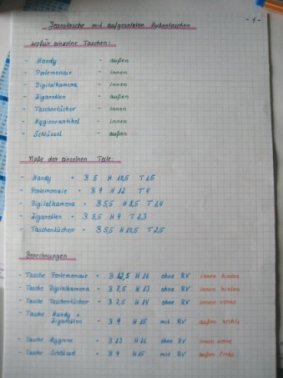 Jeanstasche mit aufgesetzten Außentaschen
- 1 -
Wofür einzelne Taschen:
- Handy - außen
- Portemonnaie - innen
- Digitalkamera - innen
- Zigaretten - außen
- Taschentücher - innen
- Hygieneartikel - innen
- Schlüssel - außen
Maße der einzelnen Teile:
- Handy = B 5 H 10,5 T 2,5
- Portemonnaie = B 9 H 12 T 4
- Digitalkamera = B 5,5 H 8,5 T 2,4
- Zigaretten = B 5,5 H 9 T 2,3
- Taschentücher = B 5,5 H 10,5 T 2,5
Berechnungen
- Tasche Portemonnaie = B 12,5 H 16 ohne RV innen hinten
- Tasche Digitalkamera = B 7,5 H 13 ohne RV innen hinten
- Tasche Taschentücher = B 7,5 H 14 ohne RV innen vorne
- Tasche Handy +
Zigaretten = B 9 H 15 mit RV außen rechts
- Tasche Hygiene = B 13 H 16 ohne RV innen vorne
- Tasche Schlüssel = B 9 H 15 mit RV außen links